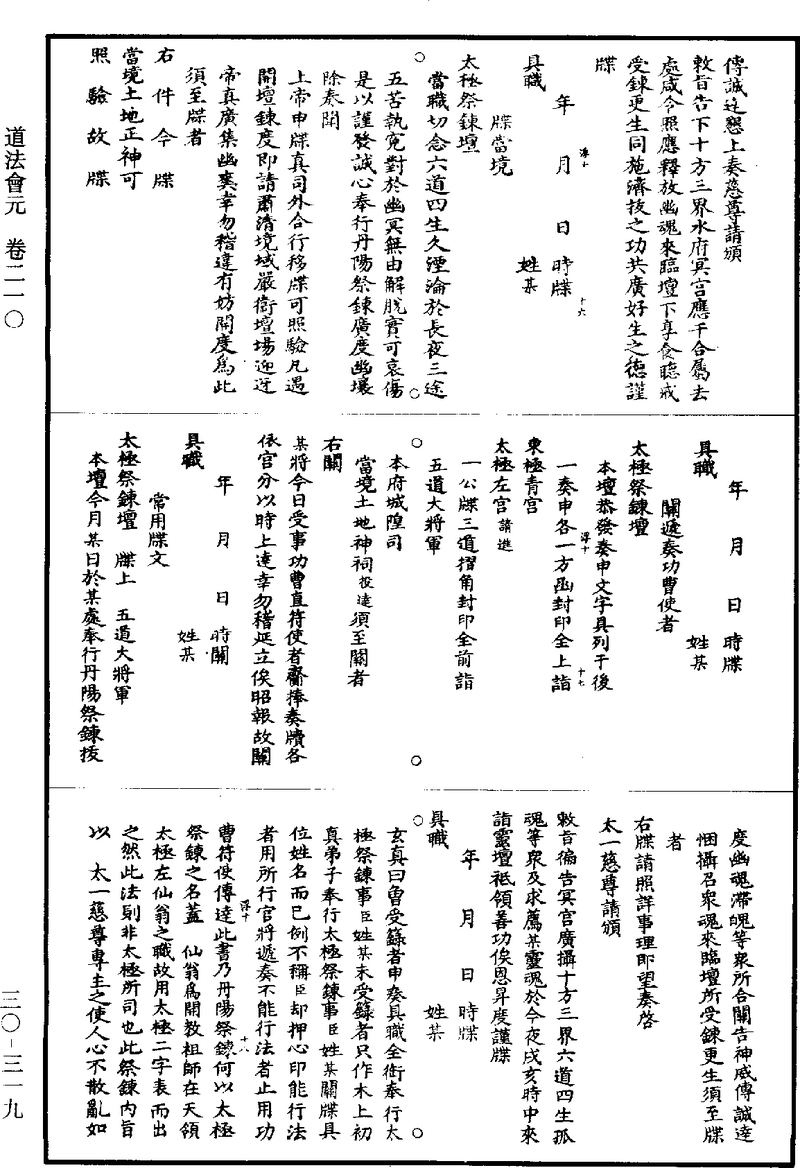 傳誠達懇上奏慈尊請頒
敕旨告下十方三界水府冥官應干合屬去
處咸令照應釋放幽魂來臨壇下享食聽戒
受鍊更生同施濟拔之功共廣好生之德謹
牒
年　月　日　時牒
具職　姓某
牒當境
太極祭鍊壇
當職切念六道四生久湮淪於長夜三途
五苦執冤對於幽冥無由解脫實可哀傷
是以謹發誠心奉行丹陽祭鍊廣度幽壤
除奏聞
上帝申牒真司外合行移牒可照驗凡遇
開壇鍊度即請肅清境域嚴衛壇場迎迓
帝真廣集幽爽幸勿稽違有妨開度爲此
須至牒者
右件今牒
當境土地正神可
照驗故牒
年　月　日　時牒
具職　姓某
關遞奏功曹使者
太極祭鍊壇
本壇恭發奏申文字具列于後
一奏申各一方函封印全上詣
東極青宮
太極左宮請進
一公牒三道摺角封印全前詣
五道大將軍
本府城隍司
當境土地神祠投達須至關者
右關
某將今日受事功曹直符使者齎捧奏牘各
依官分以時上達幸勿稽延立俟昭報故關
年　月　日　時關
具職　姓某
常用牒文
太極祭鍊壇　牒上　五道大將軍
本壇今月某日於某處奉行丹陽祭鍊拔
度幽魂滯魄等眾所合關告神威傳誠達
悃攝召眾魂來臨壇所受鍊更生須至牒
者
右牒請照詳事理即望奏啓
太一慈尊請頒
敕旨徧告冥官廣攝十方三界六道四生孤
魂等眾及求薦某靈魂於今夜戌亥時中來
詣靈壇祇領善功俟恩昇度謹牒
年　月　日　時牒
具職　姓某
玄真曰曾受籙者申奏具職全銜奉行太
極祭鍊事臣姓某未受籙者只作木上初
真弟子奉行太極祭鍊事臣姓某關牒具
位姓名而已例不稱臣却押心印能行法
者用所行官將遞奏不能行法者止用功
曹符使傳達此書乃丹陽祭鍊何以太極
祭鍊之名蓋　仙翁爲開教祖師在天領
太極左仙翁之職故用太極二字表而出
之然此法則非太極所司也此祭鍊內旨
以　太一慈尊專主之使人心不散亂如
淳十　十六
淳十　十七
淳十　十八
道法會元　卷二一〇
三〇-三一九